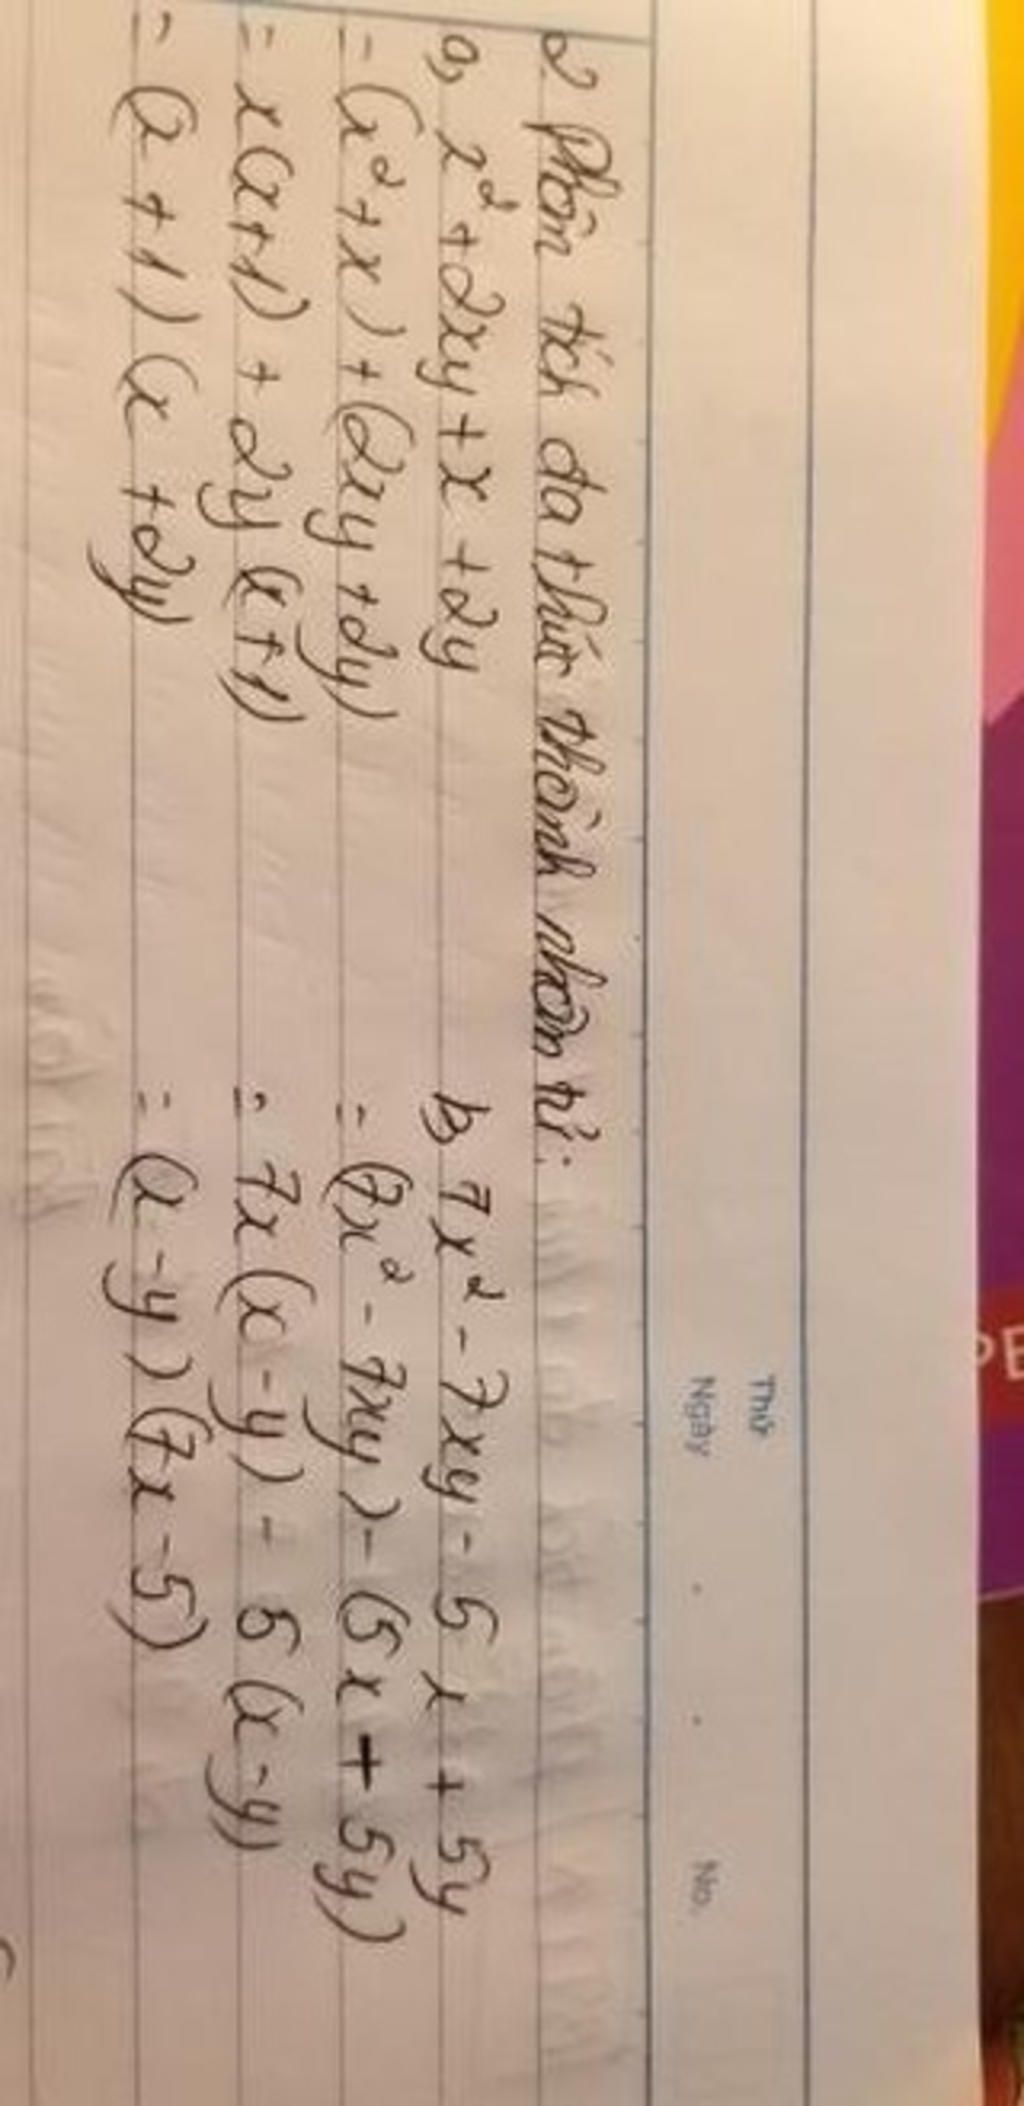 Thứ
Ngày . . No.
2. Phân tích đa thức thành nhân tử:
a, x² + 2xy + x + 2y
= (x² + x) + (2xy + 2y)
= x(x+1) + 2y (x+1)
= (x + 1) (x + 2y)
b, 7x² - 7xy - 5x + 5y
= (7x² - 7xy) - (5x + 5y)
= 7x(x - y) - 5 (x - y)
= (x - y) (7x - 5)
PE